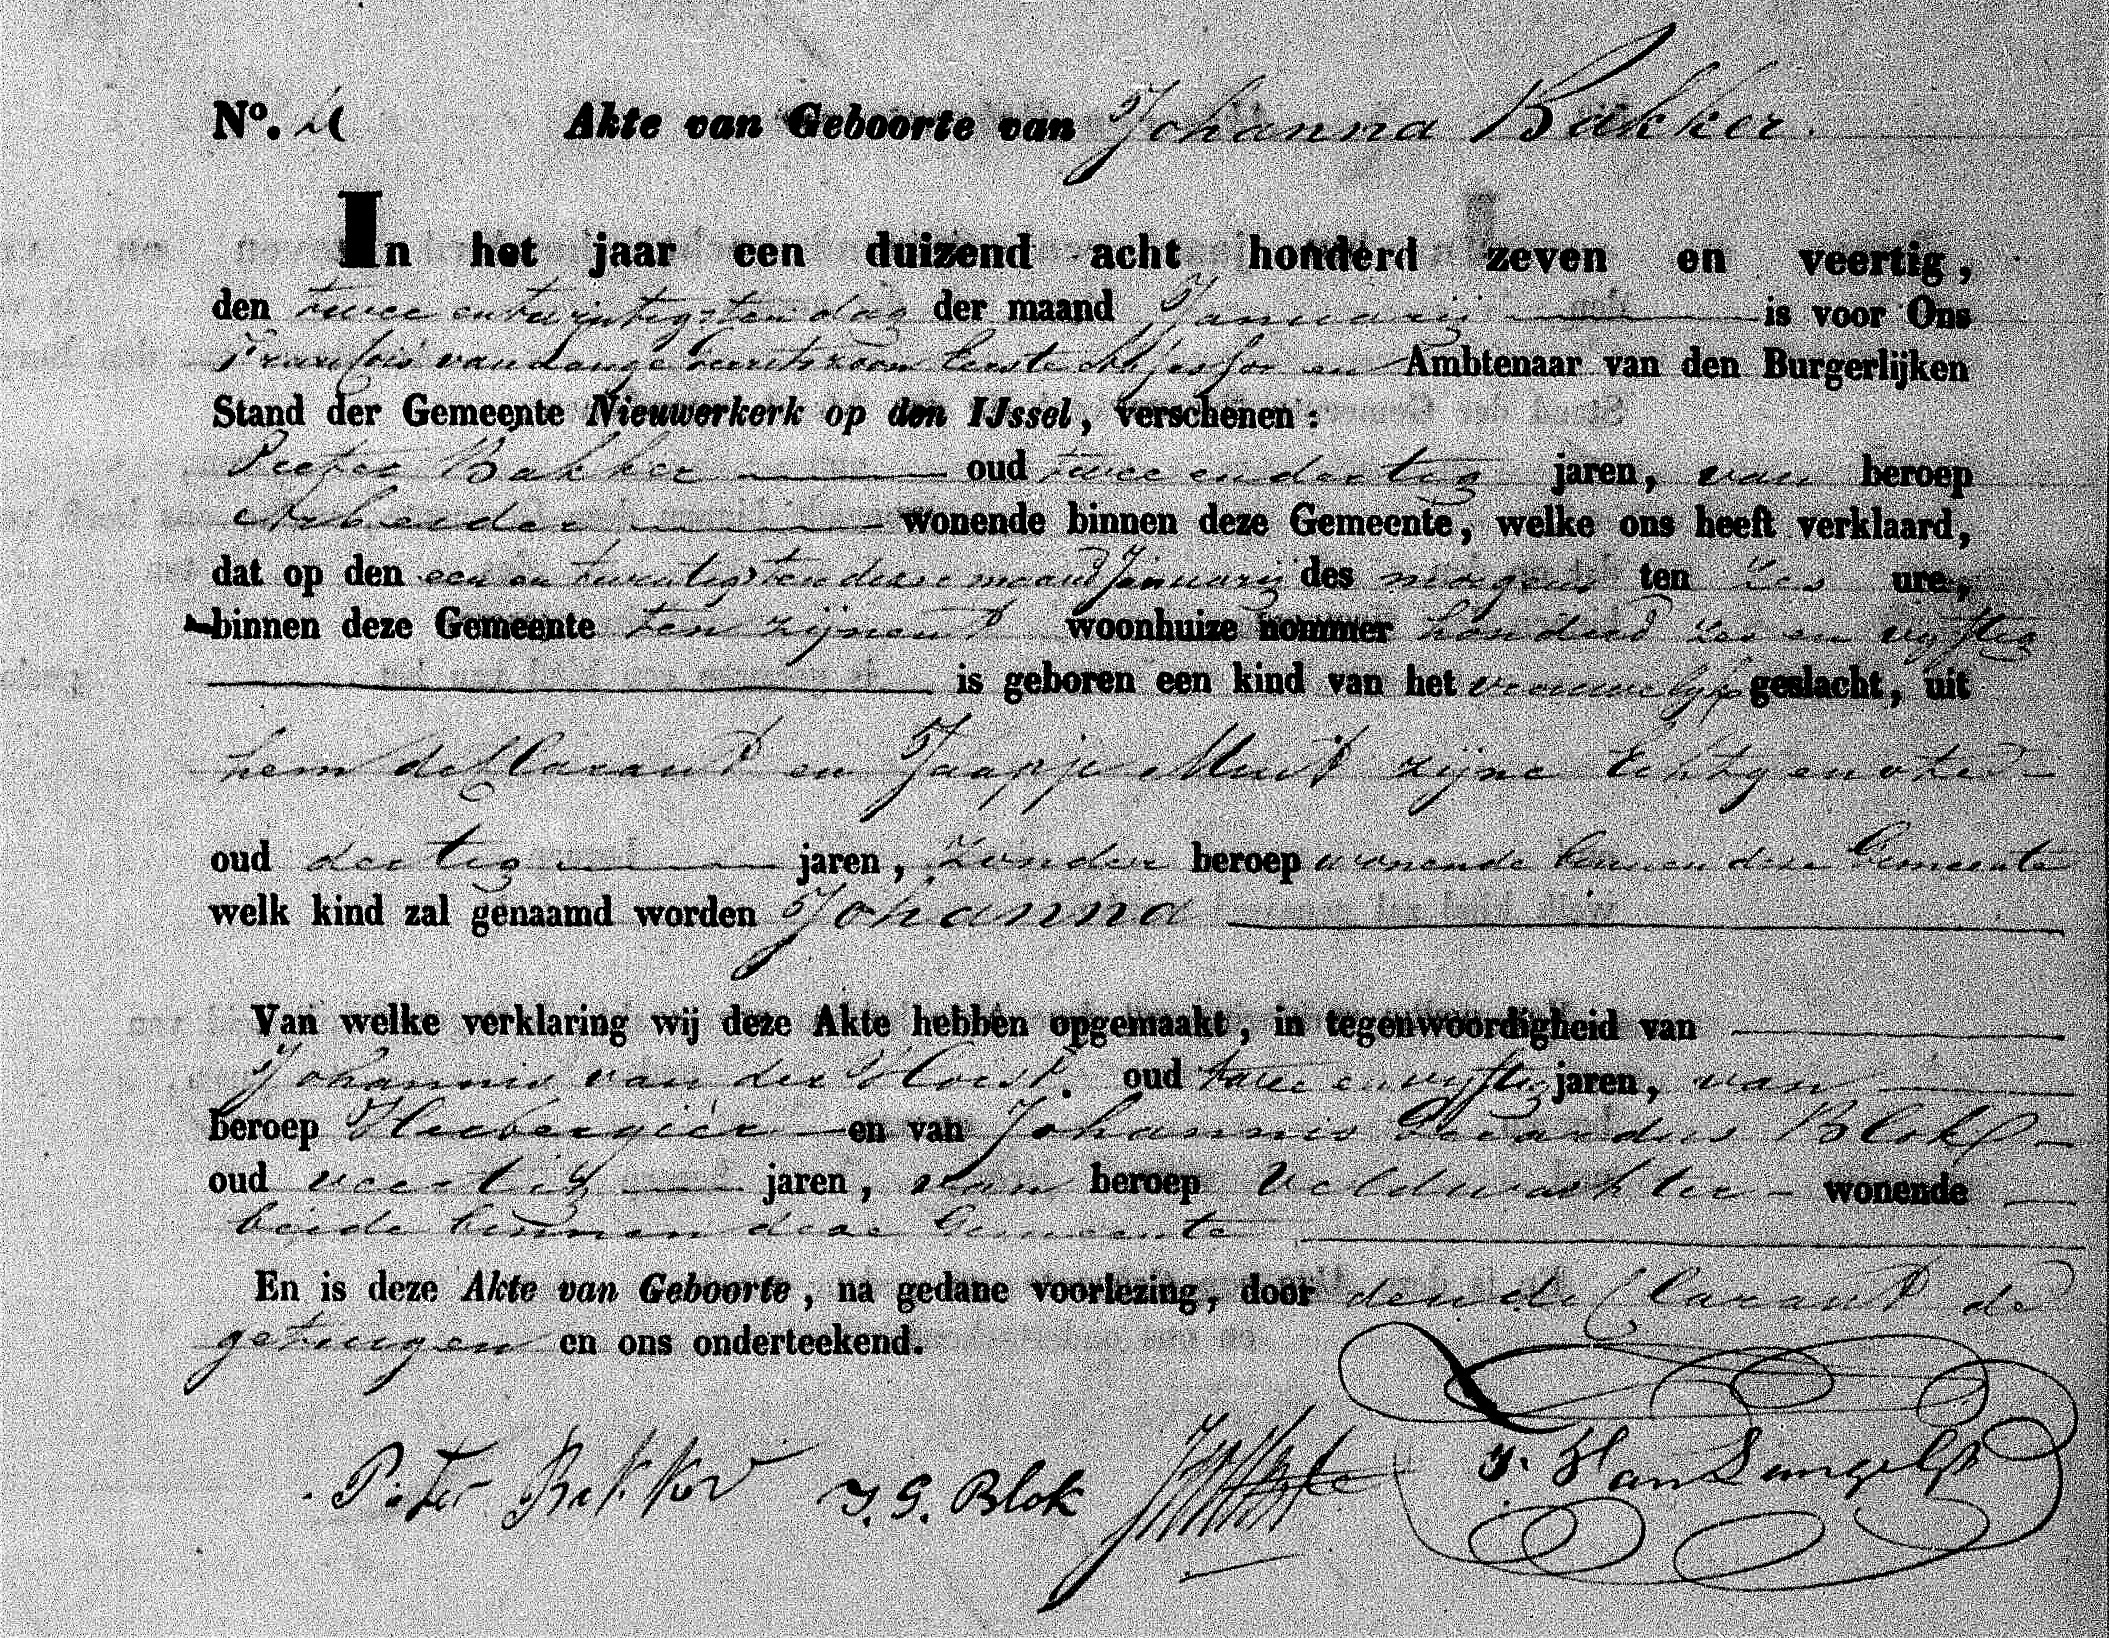 Nº. 4 Akte van Geboorte van Johanna Bakker.
In het jaar een duizend acht honderd zeven en veertig,
den twee en twintigsten dag der maand Januarij is voor Ons
van Lange eerste en Ambtenaar van den Burgerlijken
Stand der Gemeente Nieuwerkerk op den IJssel, verschenen:
Pieter Bakker oud twee en dertig jaren, van beroep
Arbeider wonende binnen deze Gemeente, welke ons heeft verklaard,
dat op den een en twintigsten dezer maand Januarij des morgens ten zes ure,
binnen deze Gemeente ten zijnent woonhuize nommer honderd zes en vijftig
is geboren een kind van het vrouwelijk geslacht, uit
hem declarant en Jaapje Muit zijne Echtgenoted
oud dertig jaren, zonder beroep wonende binnen deze Gemeente
welk kind zal genaamd worden Johanna
Van welke verklaring wij deze Akte hebben opgemaakt, in tegenwoordigheid van
Johannis van der Horst oud twee en vijftig jaren, van
beroep Herbergier en van Johannis Gerardus Blok
oud veertig jaren, van beroep Veldwachter wonende
beide binnen deze Gemeente
En is deze Akte van Geboorte, na gedane voorlezing, door den declarant de
getuigen en ons onderteekend.
Pieter Bakker J. G. Blok